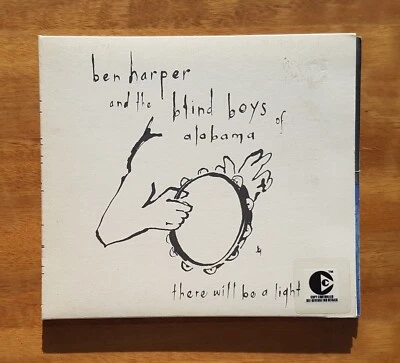 ben harper
and the blind boys of
alabama
there will be a light
COPY CONTROLLED